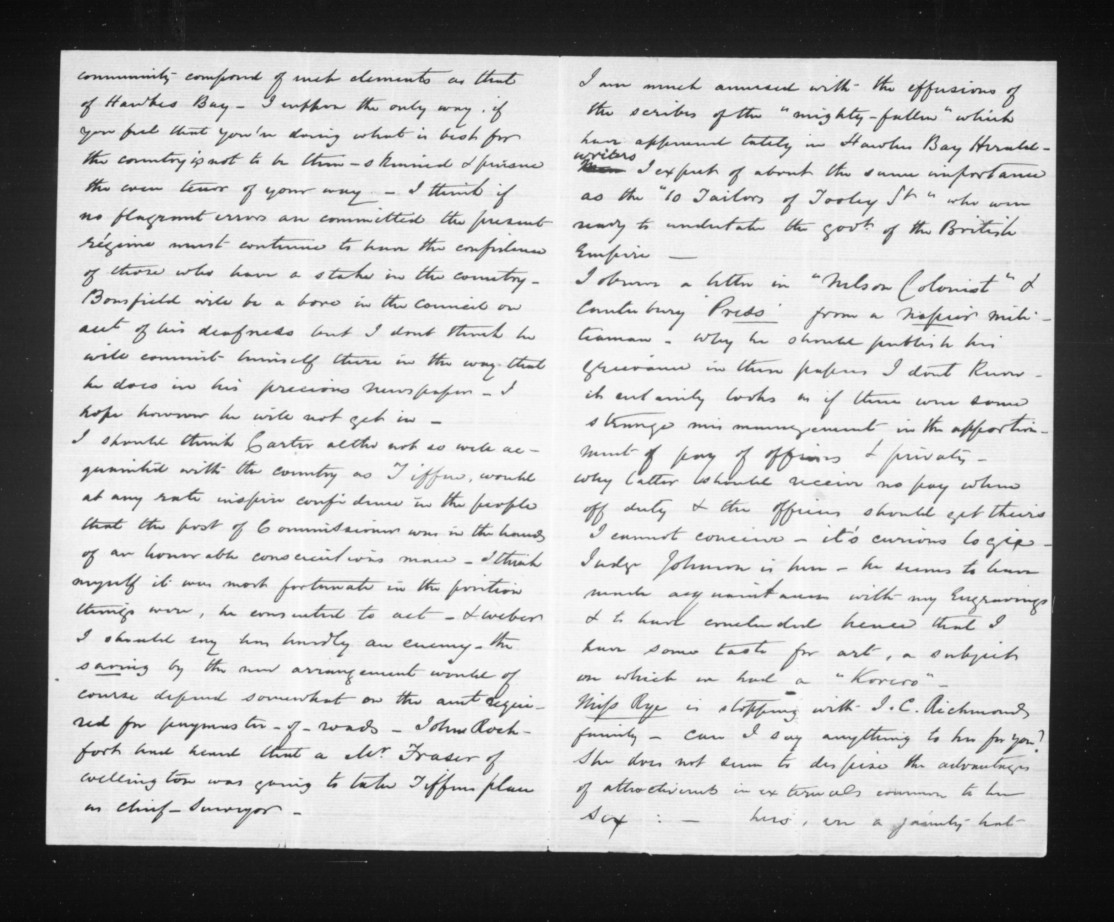 community composed of such elements as that
of Hawkes Bay - I suppose the only way, if
you feel that you're doing what is best for
the country is not to be thin-skinned & pursue
the even tenor of your way - I think if
no flagrant errors are committed the present
régime must continue to have the confidence
of those who have a stake in the country -
Bousfield will be a bore in the Council on
acct of his deafness but I dont think he
will commit himself there in the way that
he does in his precious newspaper - I
hope however he will not get in -
I should think Carter altho not so well ac-
quainted with the country as Tiffen, would
at any rate inspire confidence in the people
that the post of Commissioner was in the hands
of an honorable conscientious man - I think
myself it was most fortunate in the position
things were, he consented to act - & Weber
I should say has hardly an enemy - the
saving by the new arrangement would of
course depend somewhat on the amt requi-
red for paymaster - of - roads - John Roch-
fort had heard that a Mr Fraser of
Wellington was going to take Tiffens place
as Chief-Surveyor -
I am much amused with the effusions of
the scribes of the "mighty-fallen" which
have appeared lately in Hawkes Bay Herald -
writers I expect of about the same importance
as the "10 Tailors of Tooley St" who were
ready to undertake the govt of the British
Empire -
I observe a letter in "Nelson Colonist" &
Canterbury 'Press' from a Napier mili-
tiaman - why he should publish his
grievance in these papers I dont know -
it certainly looks as if there were some
strange mismanagement in the apportion-
ment of pay of officers & privates -
why latter should receive no pay when
off duty & the officers should get theirs
I cannot conceive - it's curious logic -
Judge Johnson is here - he seems to have
made acquaintance with my Engravings
& to have concluded hence that I
have some taste for art, a subject
on which we had a "Korero" -
Miss Rye is stopping with J. C. Richmonds
family - can I say anything to her for you?
She does not seem to despise the advantages
of attractiveness in externals common to her
sex : - hers, in a jaunty hat